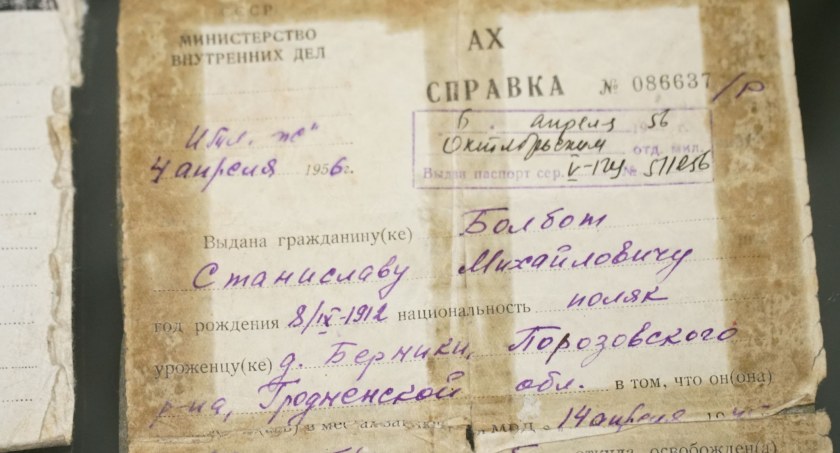 СССР
МИНИСТЕРСТВО
ВНУТРЕННИХ ДЕЛ
АХ
СПРАВКА № 086637 /Р
4 апреля 1956г.
6. апреля 56
Октябрьским отд. мил.
Выдан паспорт сер. V-ПЯ № 511256
Выдана гражданину(ке) Болбот
Станиславу Михайловичу
год рождения 8/IX-1912 национальность поляк
уроженцу(ке) д. Берники, Порозовского
р-на, Гродненской обл. в том, что он(она)
МВД с 14 апреля
откуда освобожден(а)